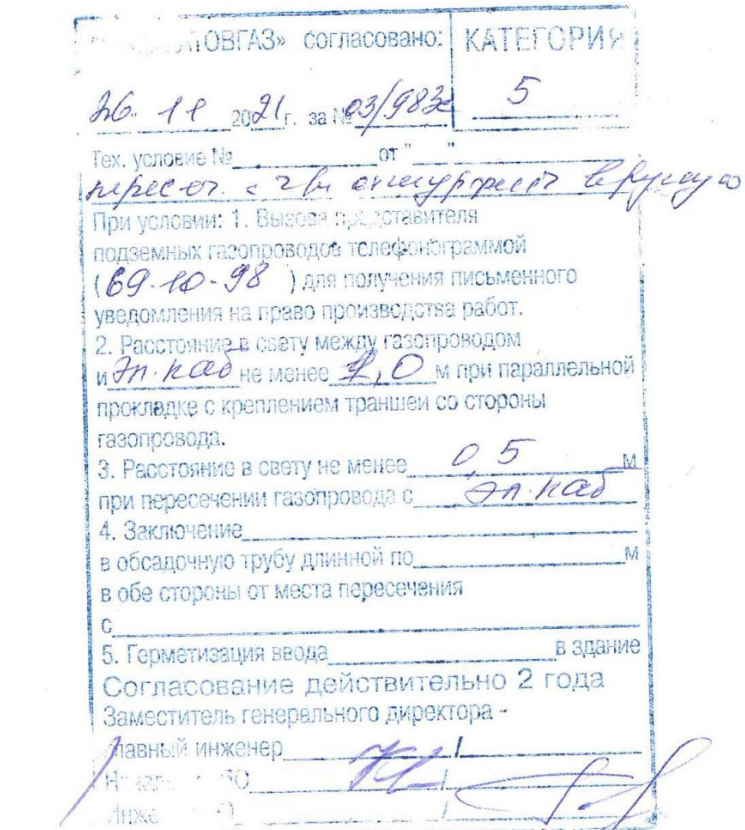 ОВГАЗ» согласовано:
КАТЕГОРИЯ
5
26. 11 2021г. за № 03/983
Тех. условие №____________от "___"
пересеч. с г/п вручную
При условии: 1. Вызова представителя
подземных газопроводов телефонограммой
(69-10-98) для получения письменного
уведомления на право производства работ.
2. Расстояние в свету между газопроводом
и эл. каб не менее 1,0 м при параллельной
прокладке с креплением траншеи со стороны
газопровода.
3. Расстояние в свету не менее 0,5 м
при пересечении газопровода с эл. каб
4. Заключение____________
в обсадочную трубу длинной по____________м
в обе стороны от места пересечения
с____________
5. Герметизация ввода____________в здание
Согласование действительно 2 года
Заместитель генерального директора -
главный инженер____________/____________